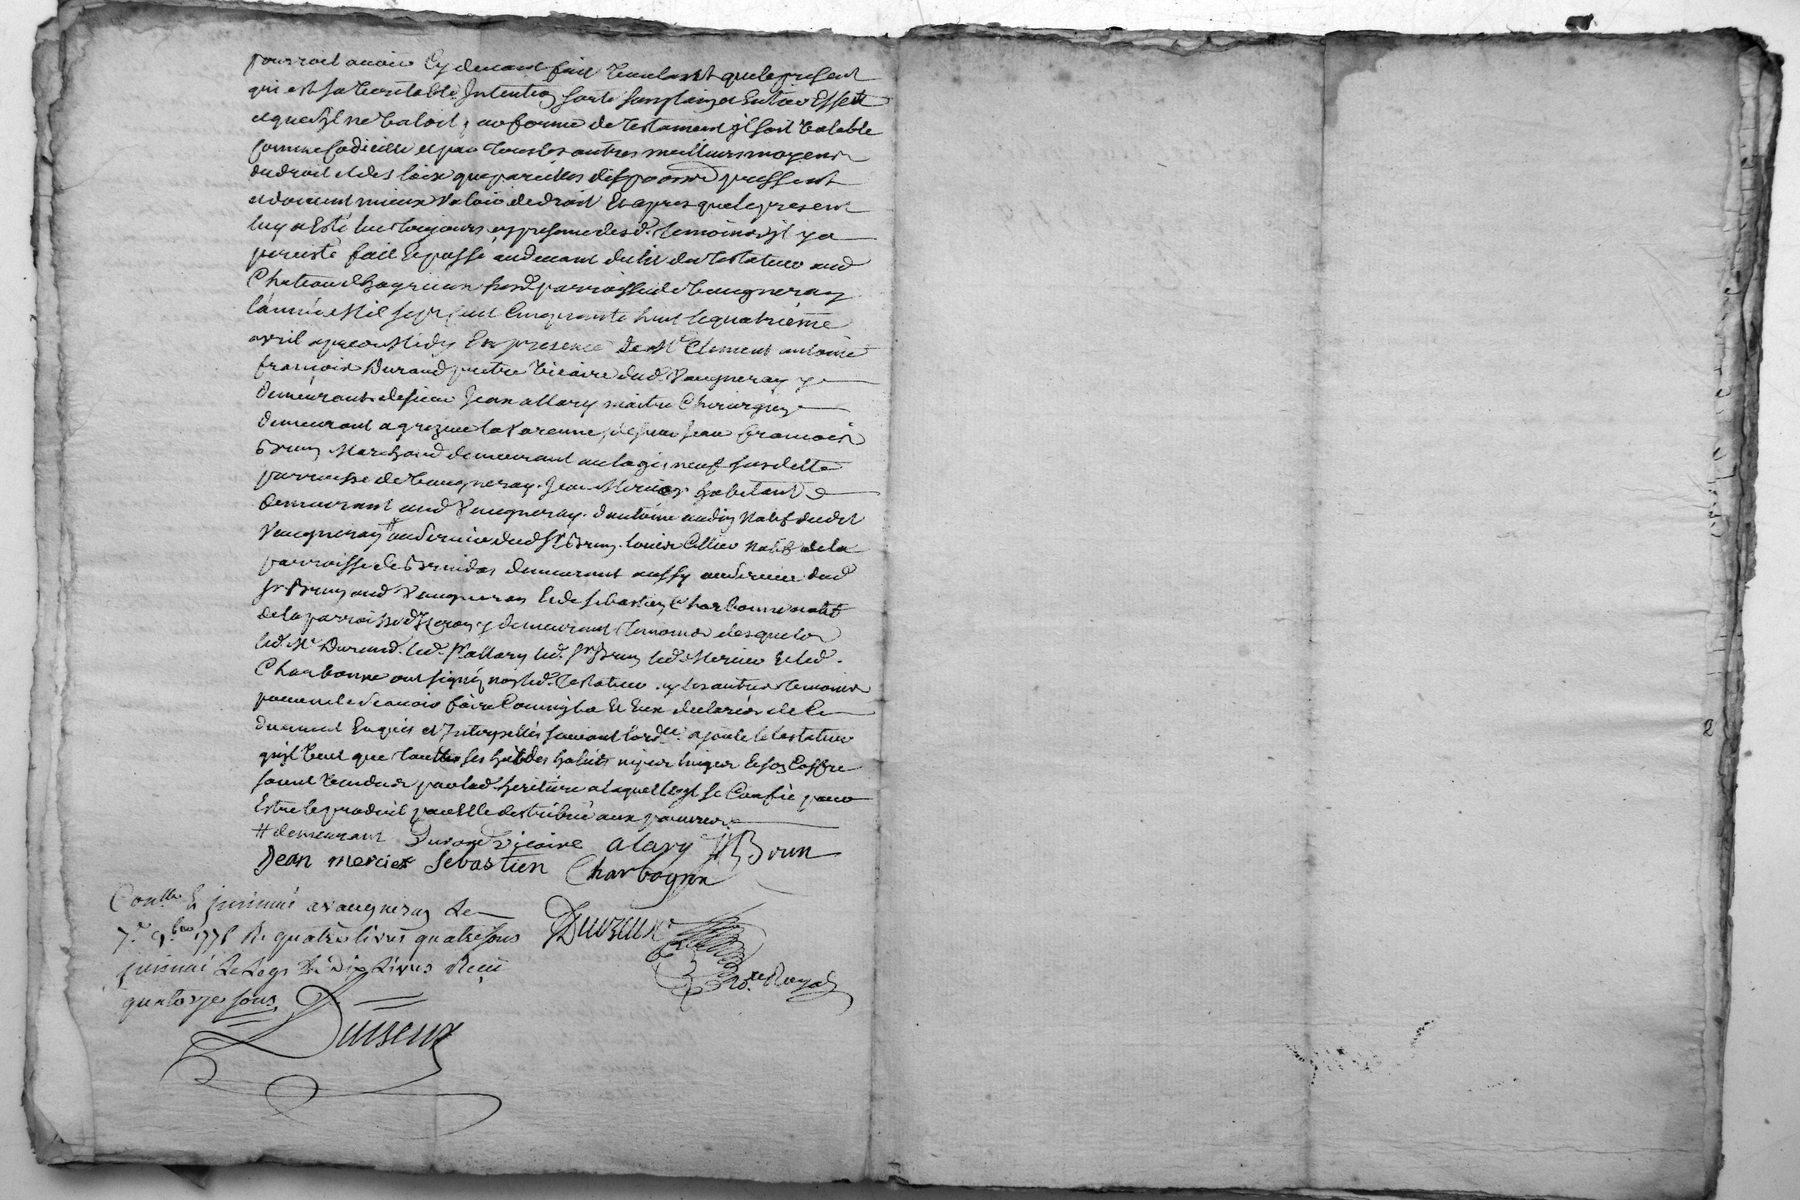 pourroit avoir cy devant fait voulant que le present
qui est sa veritable intention sorte son plain et entier effett
et que s'il ne valoit, en forme de testament il soit valable
comme codicille et par tous les autres meilleurs moyens
du droit et des loix que pareilles dispoons pussent
et doivent mieux valoir de droit et apres que le present
luy a esté lu toujours en presence desd. temoins il y a
percisté fait et passé au devant du lit du testateur aud
Chateau susd. parroisse de Vaugneray
l'année mil sept cent cinquante huit le quatrieme
avril apres midy en presence de Mr Clement antoine
françois Durand pretre vicaire dud. Vaugneray y
demeurant de sieur Jean allary maitre Chirurgien
demeurant a grezieu la Varenne, de sieur Jean françois
Brun Marchand demeurant au logis neuf susditte
parroisse de Vaugneray. Jean Mercier habitant
demeurant aud Vaugneray. d'antoine natif dudit
Vaugneray # au service dud Sr Brun. louis Ollier natif de la
parroisse de Brindas demeurant aussy au service dud
Sr Brun aud Vaugneray et de sebastien Charbonne natif
de la parroisse d' y demeurant temoins desquels
led. Mr Durand. led. Sr allary led. Sr Brun led Mercier et led.
Charbonne ont signé non led. testateur ny les autres temoins
pour ne le scavoir faire comme ils et eux declarés de ce
duement enquis et interpellés suivant l'ordce. ajoute le testateur
qu'il veut que touttes ses hardes habits linges et son coffre
soient vendus par lad. heritiere a laquelle il se confie pour
Estre le produit par elle distribué aux pauvres
# demeurant Durand vicaire alary Brun
Jean mercier Sebastien Charbognon
Conllé & insinué a vaugneray le
7e 9bre 1778 R. quatre livres quatre sous
insinué le legs de dix livres Reçu
quatorze sous
Duizeux
No.re Royal
Duiseux
2